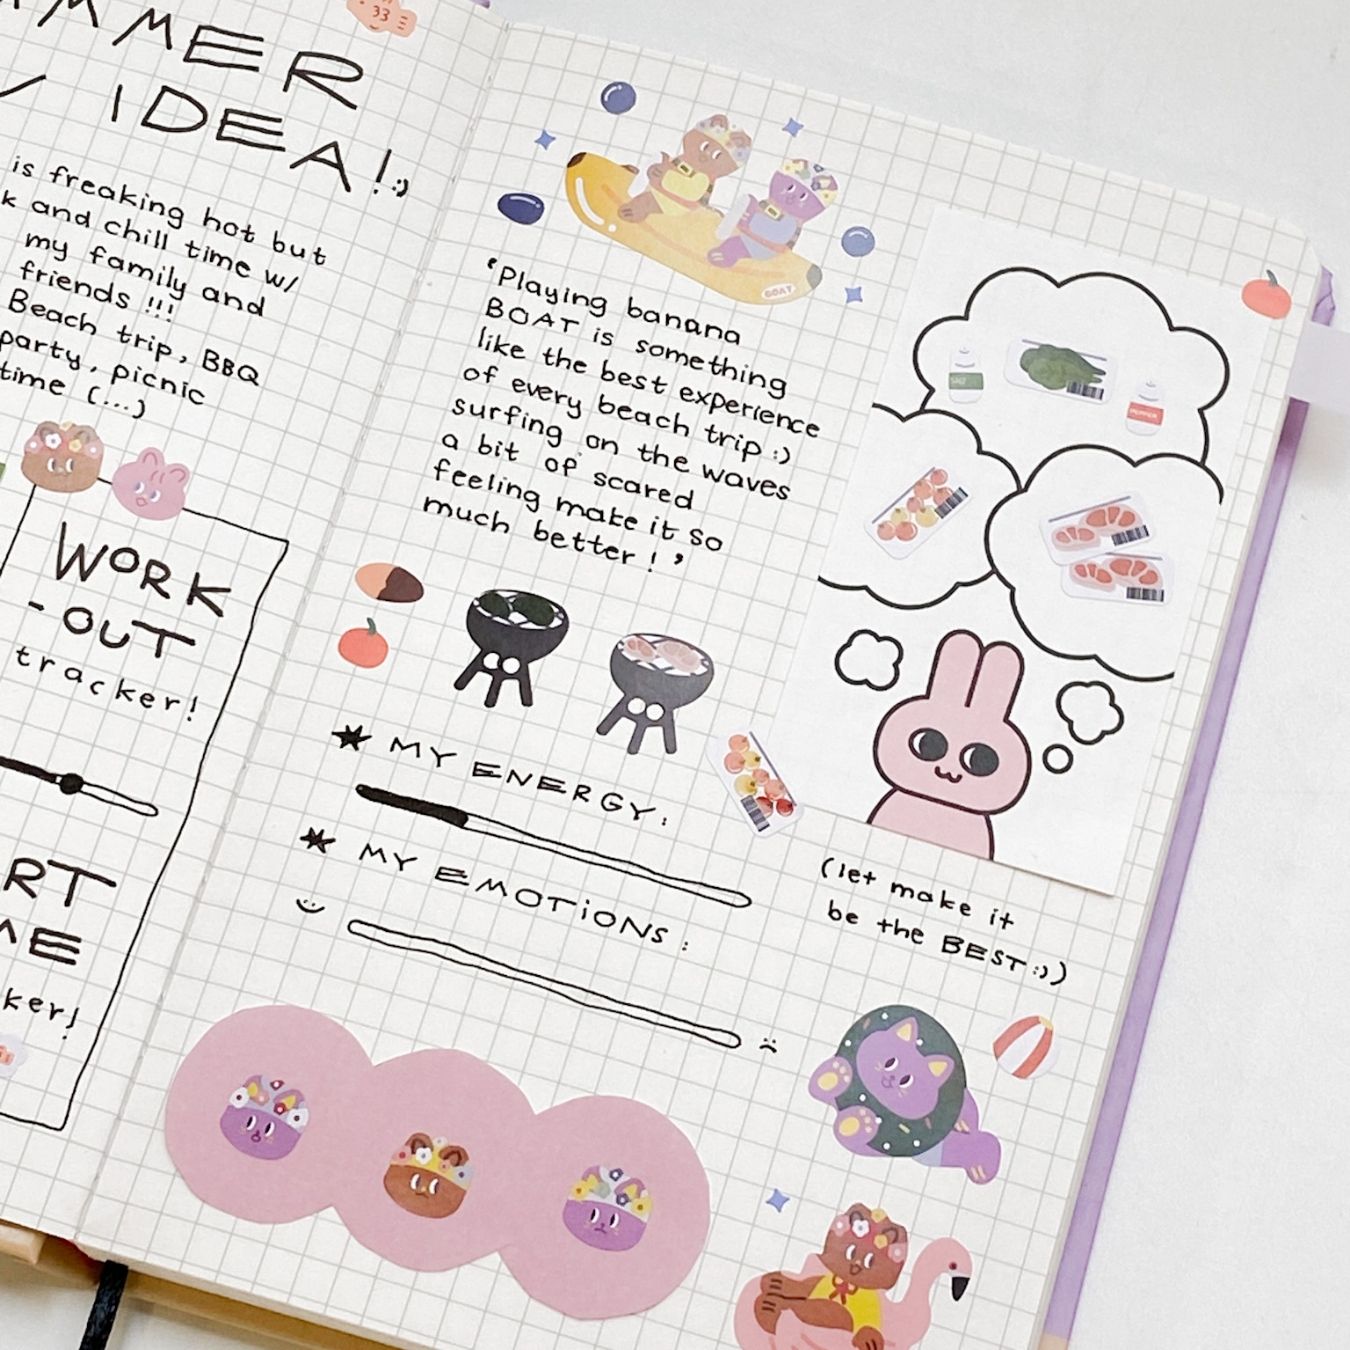 MMER
IDEA! :)
is freaking hot but
k and chill time w/
my family and
friends !!!
Beach trip, BBQ
party, picnic
time (...)
WORK
-OUT
tracker!
RT
ME
ker!
33
BOAT
'Playing banana
BOAT is something
like the best experience
of every beach trip :)
surfing on the waves
a bit of scared
feeling make it so
much better ! '
SALT
PEPPER
MY ENERGY:
MY EMOTIONS:
(let make it
be the BEST :) )